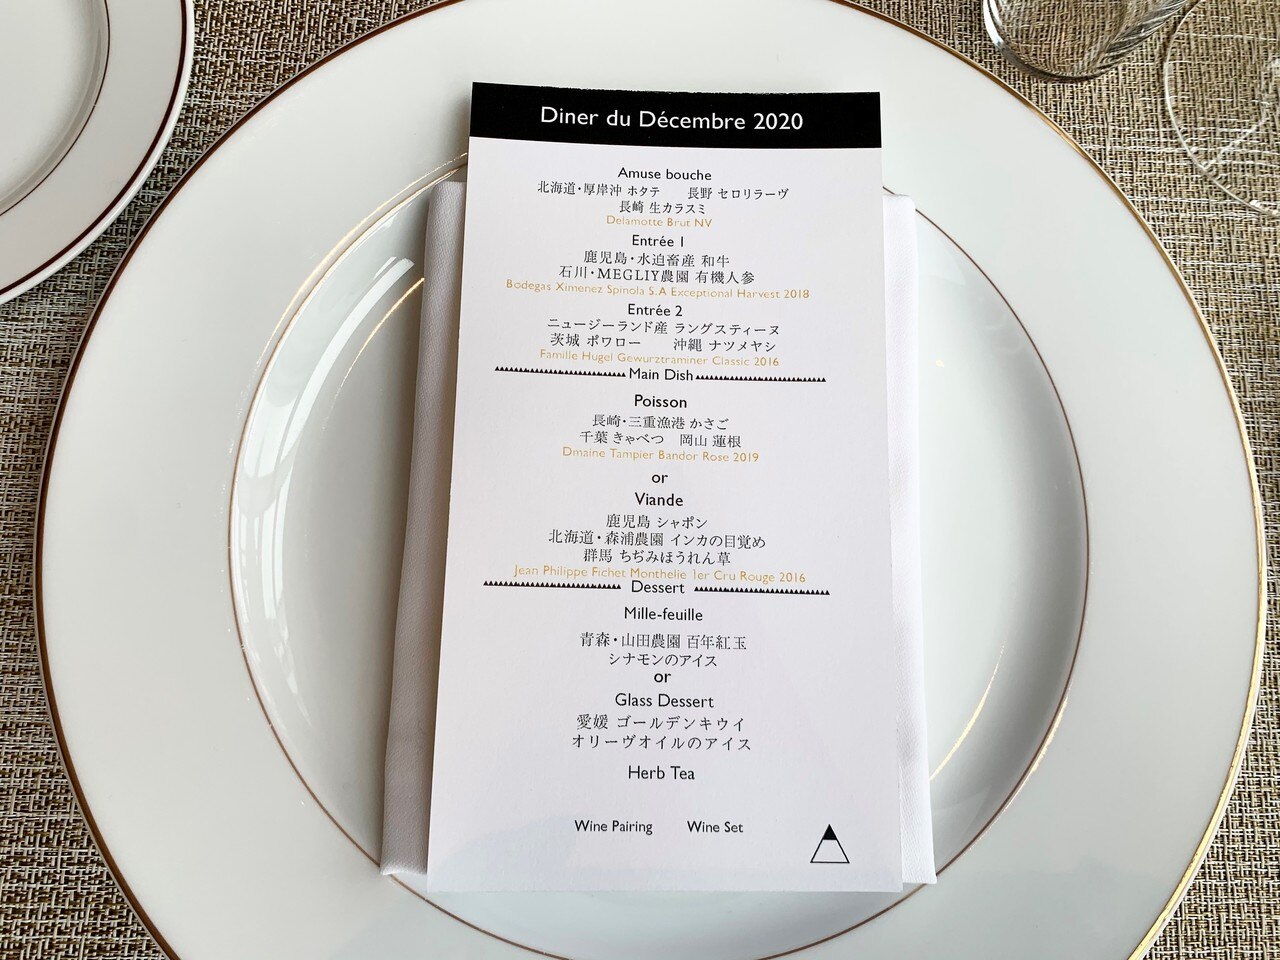 Diner du Décembre 2020
Amuse bouche
北海道・厚岸沖 ホタテ　　長野 セロリラーヴ
長崎 生カラスミ
Delamotte Brut NV
Entrée 1
鹿児島・水迫畜産 和牛
石川・MEGLIY農園 有機人参
Bodegas Ximenez Spinola S.A Exceptional Harvest 2018
Entrée 2
ニュージーランド産 ラングスティーヌ
茨城 ポワロー　　沖縄 ナツメヤシ
Famille Hugel Gewurztraminer Classic 2016
Main Dish
Poisson
長崎・三重漁港 かさご
千葉 きゃべつ　岡山 蓮根
Dmaine Tampier Bandor Rose 2019
or
Viande
鹿児島 シャポン
北海道・森浦農園 インカの目覚め
群馬 ちぢみほうれん草
Jean Philippe Fichet Monthelie 1er Cru Rouge 2016
Dessert
Mille-feuille
青森・山田農園 百年紅玉
シナモンのアイス
or
Glass Dessert
愛媛 ゴールデンキウイ
オリーヴオイルのアイス
Herb Tea
Wine Pairing　　Wine Set